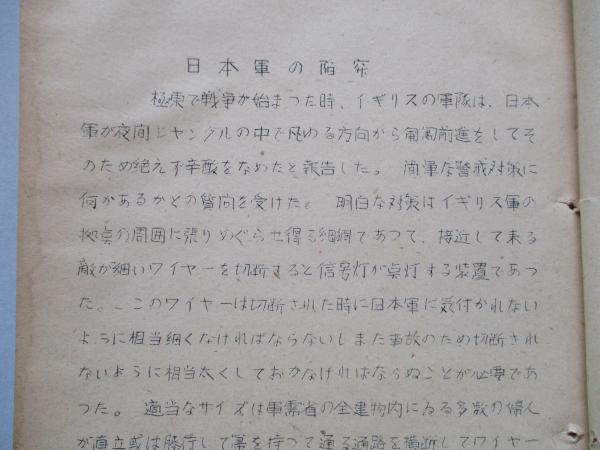 日本軍の陥穽
極東で戦争が始まつた時、イギリスの軍隊は、日本
軍が夜間ジヤングルの中で凡ゆる方向から匍匐前進をしてそ
のため絶えず辛酸をなめたと報告した。 簡単な警戒対策に
何かあるかとの質問を受けた。 明白な対策はイギリス軍の
拠点の周囲に張りめぐらせ得る細綱であつて、接近して来る
敵が細いワイヤーを切断すると信号灯が点灯する装置であつ
た。 このワイヤーは切断された時に日本軍に気付かれない
ように相当細くなければならないしまた事故のため切断され
ないように相当太くしておかなければならぬことが必要であ
つた。 適当なサイズは軍需省の全建物内にゐる多数の婦人
が直立或は膝行して箒を持つて通る通路を横断してワイヤー